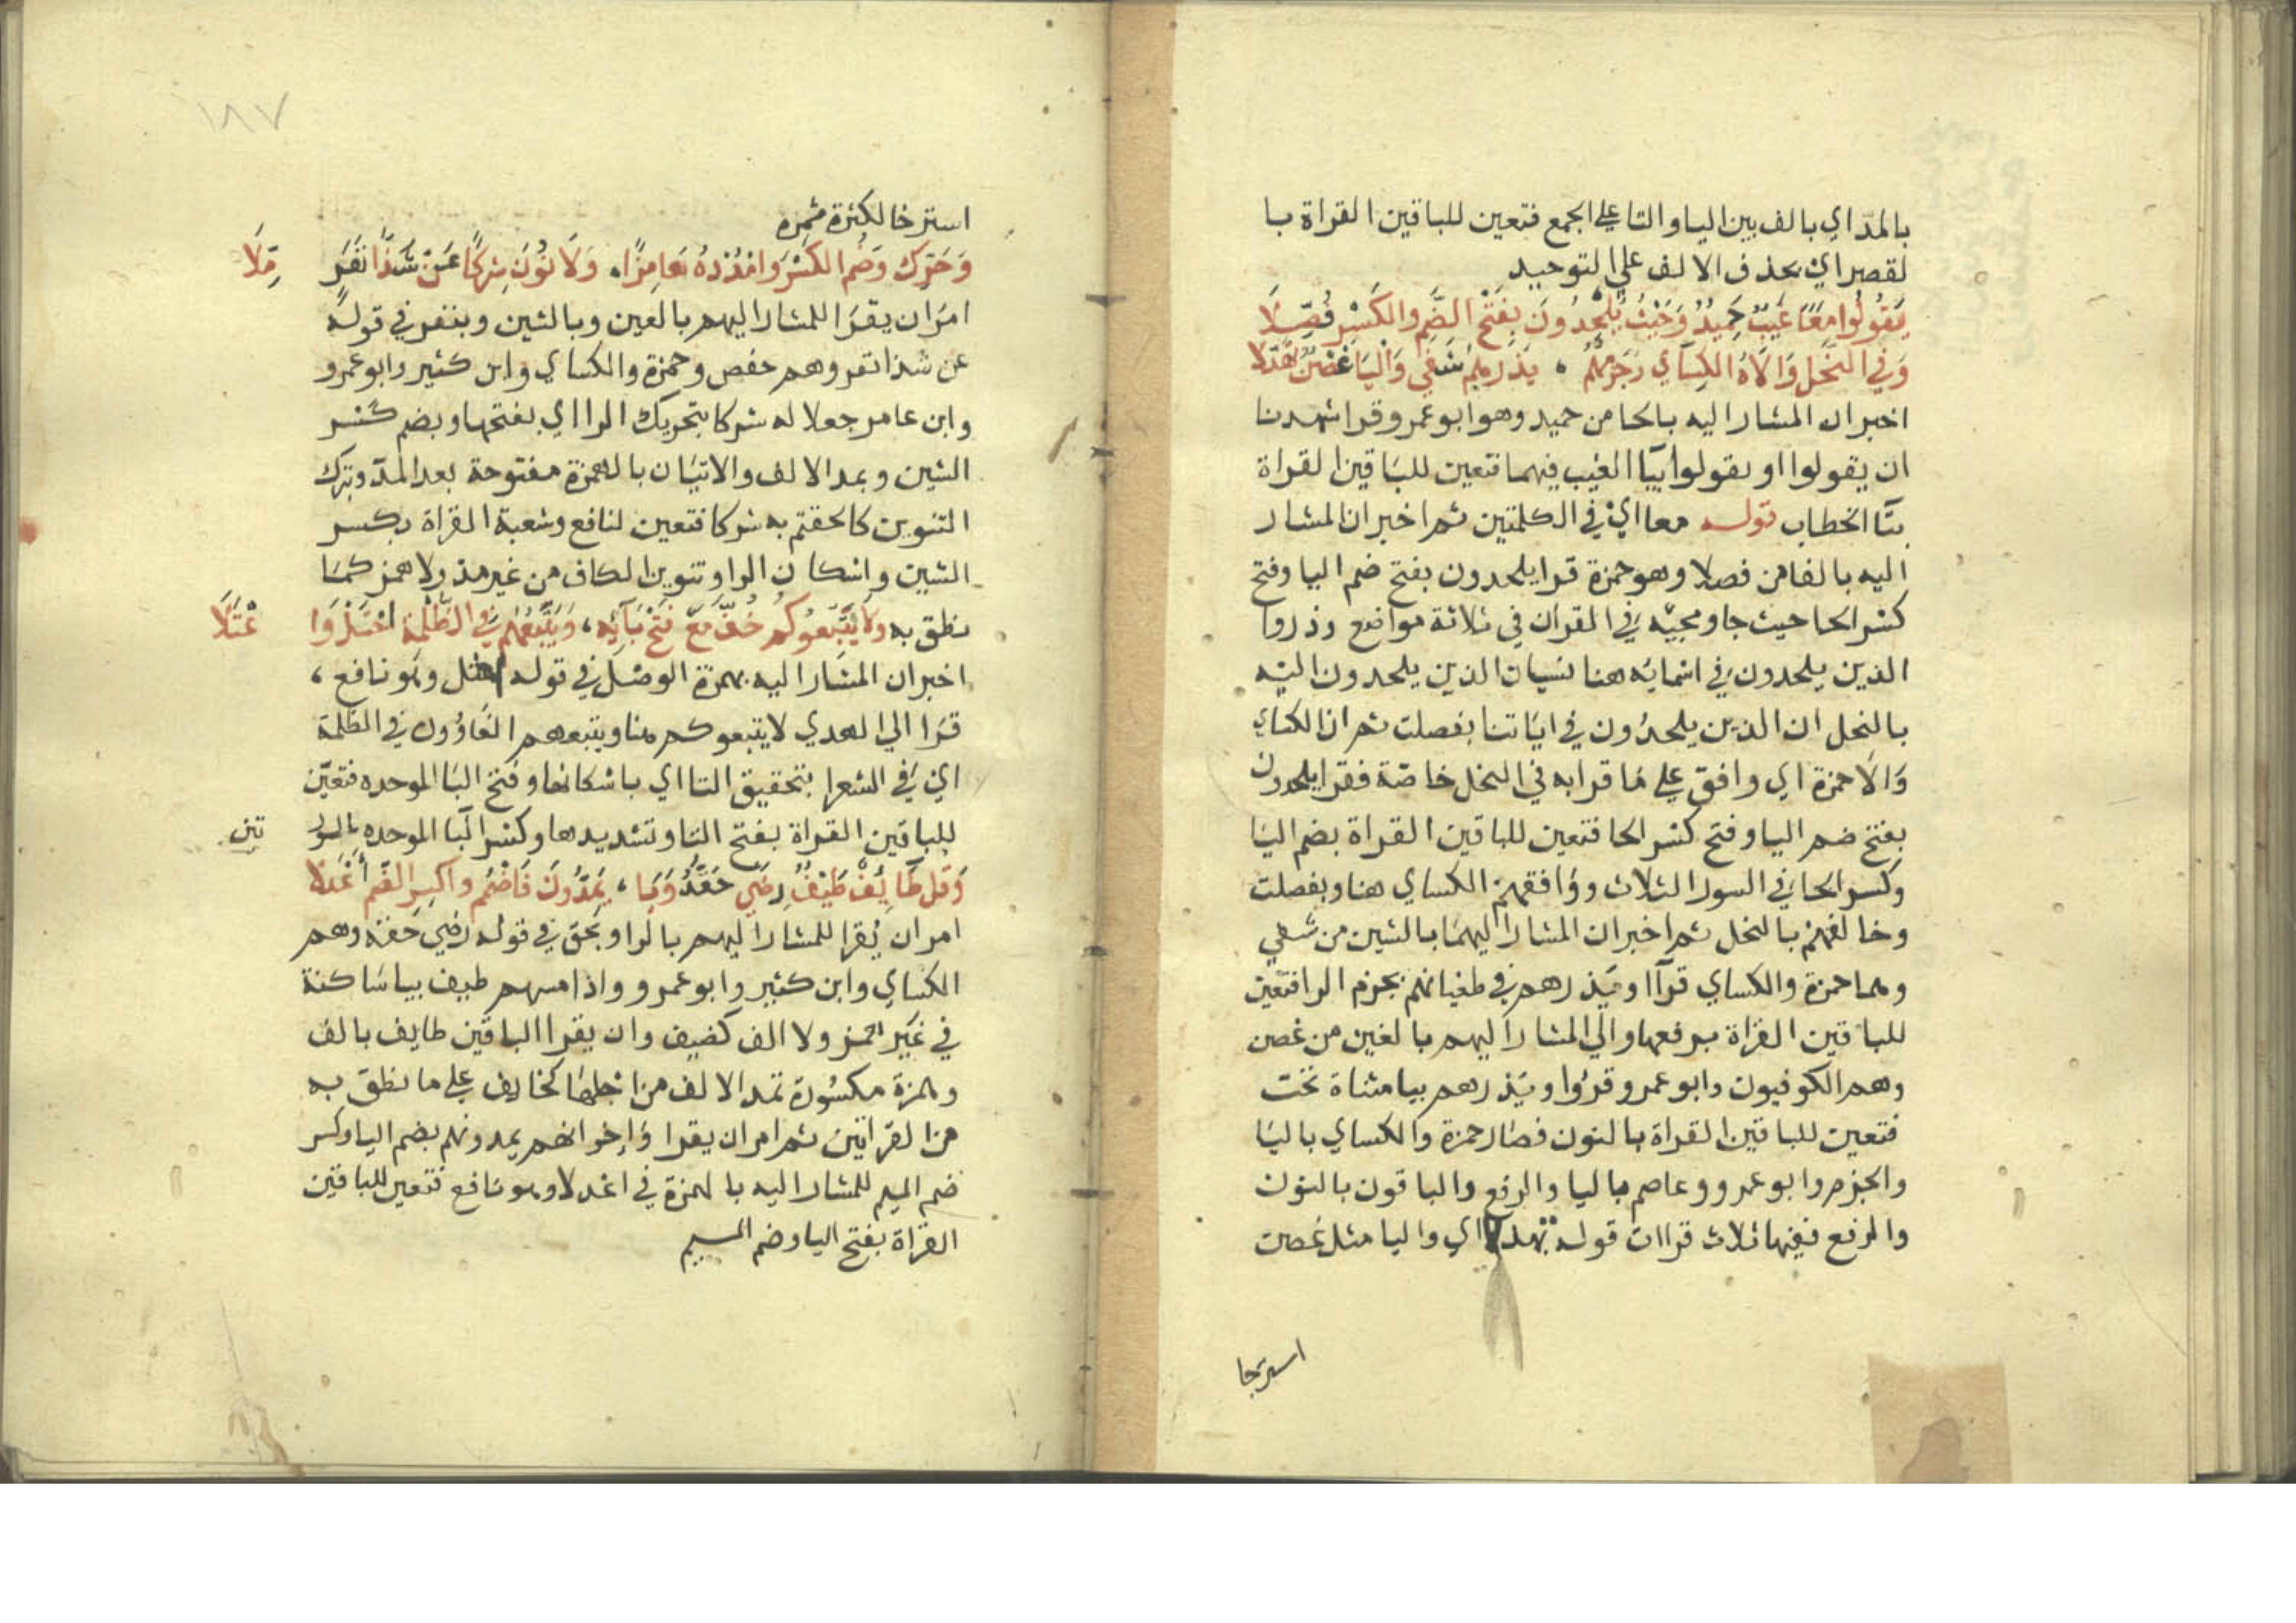 بالمد اي بالف بين اليا والتا علي الجمع فتعين للباقين القراة با
لقصر اي بحذف الالف علي التوحيد
يَقُولُوا مَعًا غَيْبٌ حَمِيدٌ وَحَيْثُ يُلْحِدُونَ بِفَتْحِ الضَّمِ والكَسْرِ فُصِّلَا
وَفِي النَّحْلِ وَالَاهُ الكِسَآي وَجَزْمُهُمْ ، يَذَرْهُم شَفَى وَالْيَا غُصْنٌ تَهَدَّلا
اخبر ان المشار اليه بالحا من حميد وهو ابو عمرو قرا شهدنا
ان يقولوا او يقولوا بيا الغيب فيهما فتعين للباقين القراة
بتا الخطاب قوله معا اي في الكلمتين ثم اخبر ان المشار
اليه بالفا من فصلا وهو حمزة قرا يلحدون بفتح ضم اليا وفتح
كسر الحا حيث جا ومجيه في القران في ثلاثة مواضع وذروا
الذين يلحدون في اسمايه هنا لسان الذين يلحدون اليه
بالنحل ان الذين يلحدون في اياتنا بفصلت ثم ان الكساي
والا حمزة اي وافق علي ما قرا به في النحل خاصة فقرا يلحدون
بفتح ضم اليا وفتح كسر الحا فتعين للباقين القراة بضم اليا
وكسر الحا في السور الثلاث ووافقهم الكساي هنا وبفصلت
وخالفهم بالنحل ثم اخبر ان المشار اليهما بالشين من شفي
وهما حمزة والكساي قرآا ويذرهم في طغيانهم بجزم الرا فتعين
للباقين القراة برفعها والي المشار اليهم بالغين من غصن
وهم الكوفيون وابو عمرو قروا ويذرهم بيا مثناة تحت
فتعين للباقين القراة بالنون فصار حمزة والكساي باليا
والجزم وابو عمرو وعاصم باليا والرفع والباقون بالنون
والرفع ففيها ثلاث قراات قوله تهدلا اي واليا مثل غصن
استرخا
١٨٧
استرخا لكثرة ثمره
وَحَرِّك وَضُم الكَسْرَ وامْدُدْهُ هَامِزًا، وَلَا نُونَ شِرْكًا عَنْ شَذَا نَفَرٍ مِّلَا
امر ان يقرا للمشار اليهم بالعين وبالشين وبنفر في قوله
عن شذا نفر وهم حفص وحمزة والكساي وابن كثير وابو عمرو
وابن عامر جعلا له شركا بتحريك الرا اي بفتحها وبضم كسر
الشين وبمد الالف والاتيان بالهمزة مفتوحة بعد المد وترك
التنوين كالحقتم به شركا فتعين لنافع وشعبة القراة بكسر
الشين واسكان الرا وتنوين الكاف من غير مد ولا همز كما
نطق به ولَا يَتْبَعُوكُم خُفَّ مَعَ فَتْحِ بَآئِهِ ، وَيَتْبَعُهُم في الظُّلَّةِ احْتَلَّ وَا عْتَلَا
اخبر ان المشار اليه بهمزة الوصل في قوله احتل وهو نافع ،
قرا الي الهدي لا يتبعوكم هنا ويتبعهم الغاوون في الظلة
اي في الشعرا بتحقيق التا اي باسكانها وفتح البا الموحده فتعين
للباقين القراة بفتح التا وتشديدها وكسر البا الموحده بالسور تين
وَقُل طَآيِفٌ طَيْفٌ رِضَي حَقُّهُ وَيَا ، يَمُدُّونَ فَاضْمُم واكْسِرِ الضَّم أَعْدَلا
امر ان يقرا للمشار اليهم بالرا وبحق في قوله رضي حقه وهم
الكساي وابن كثير وابو عمرو واذا مسهم طيف بيا ساكنة
في غير همز ولا الف كضيف وان يقرا الباقين طايف بالف
وهمزة مكسورة تمد الالف من اجلها كخايف علي ما نطق به
من القراتين ثم امر ان يقرا واخوانهم يمدونهم بضم اليا وكسر
ضم الميم للمشار اليه بالهمزة في اعدلا وهو نافع فتعين للباقين
القراة بفتح اليا وضم الميم